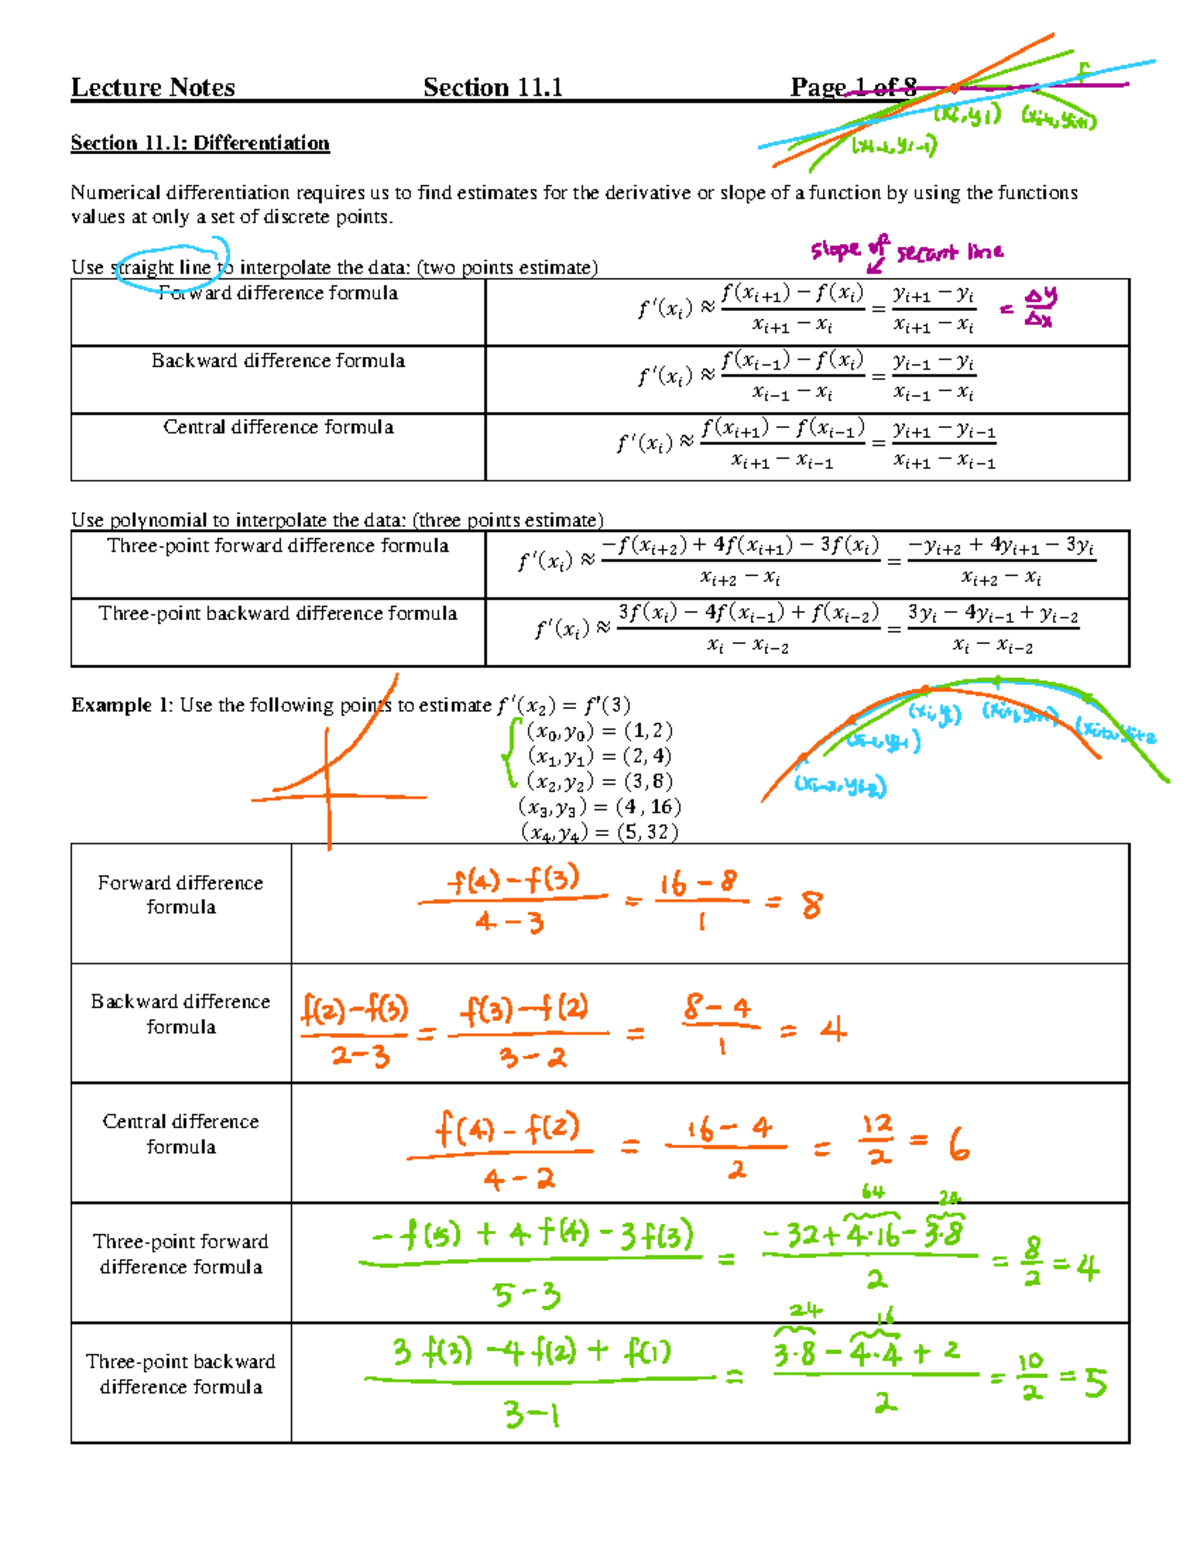 Lecture Notes Section 11.1 Page 1 of 8
f
(xi, yi) (xi+1, yi+1)
(xi-1, yi-1)
Section 11.1: Differentiation
Numerical differentiation requires us to find estimates for the derivative or slope of a function by using the functions
values at only a set of discrete points.
slope of secant line
Use straight line to interpolate the data: (two points estimate)
Forward difference formula f ′(xᵢ) ≈ (f(xᵢ₊₁) − f(xᵢ))/(xᵢ₊₁ − xᵢ) = (yᵢ₊₁ − yᵢ)/(xᵢ₊₁ − xᵢ) = Δy/Δx
Backward difference formula f ′(xᵢ) ≈ (f(xᵢ₋₁) − f(xᵢ))/(xᵢ₋₁ − xᵢ) = (yᵢ₋₁ − yᵢ)/(xᵢ₋₁ − xᵢ)
Central difference formula f ′(xᵢ) ≈ (f(xᵢ₊₁) − f(xᵢ₋₁))/(xᵢ₊₁ − xᵢ₋₁) = (yᵢ₊₁ − yᵢ₋₁)/(xᵢ₊₁ − xᵢ₋₁)
Use polynomial to interpolate the data: (three points estimate)
Three-point forward difference formula f ′(xᵢ) ≈ (−f(xᵢ₊₂) + 4f(xᵢ₊₁) − 3f(xᵢ))/(xᵢ₊₂ − xᵢ) = (−yᵢ₊₂ + 4yᵢ₊₁ − 3yᵢ)/(xᵢ₊₂ − xᵢ)
Three-point backward difference formula f ′(xᵢ) ≈ (3f(xᵢ) − 4f(xᵢ₋₁) + f(xᵢ₋₂))/(xᵢ − xᵢ₋₂) = (3yᵢ − 4yᵢ₋₁ + yᵢ₋₂)/(xᵢ − xᵢ₋₂)
Example 1: Use the following points to estimate f ′(x₂) = f′(3)
(x₀, y₀) = (1, 2)
(x₁, y₁) = (2, 4)
(x₂, y₂) = (3, 8)
(x₃, y₃) = (4 , 16)
(x₄, y₄) = (5, 32)
(xi, yi) (xi+1, yi+1) (xi+2, yi+2
(xi-1, yi-1)
(xi-2, yi-2)
Forward difference
formula
(f(4) - f(3))/(4 - 3) = (16 - 8)/1 = 8
Backward difference
formula
(f(2) - f(3))/(2 - 3) = (f(3) - f(2))/(3 - 2) = (8 - 4)/1 = 4
Central difference
formula
(f(4) - f(2))/(4 - 2) = (16 - 4)/2 = 12/2 = 6
Three-point forward
difference formula
64 24
(-f(5) + 4f(4) - 3f(3))/(5 - 3) = (-32 + 4·16 - 3·8)/2 = 8/2 = 4
Three-point backward
difference formula
24 16
(3f(3) - 4f(2) + f(1))/(3 - 1) = (3·8 - 4·4 + 2)/2 = 10/2 = 5